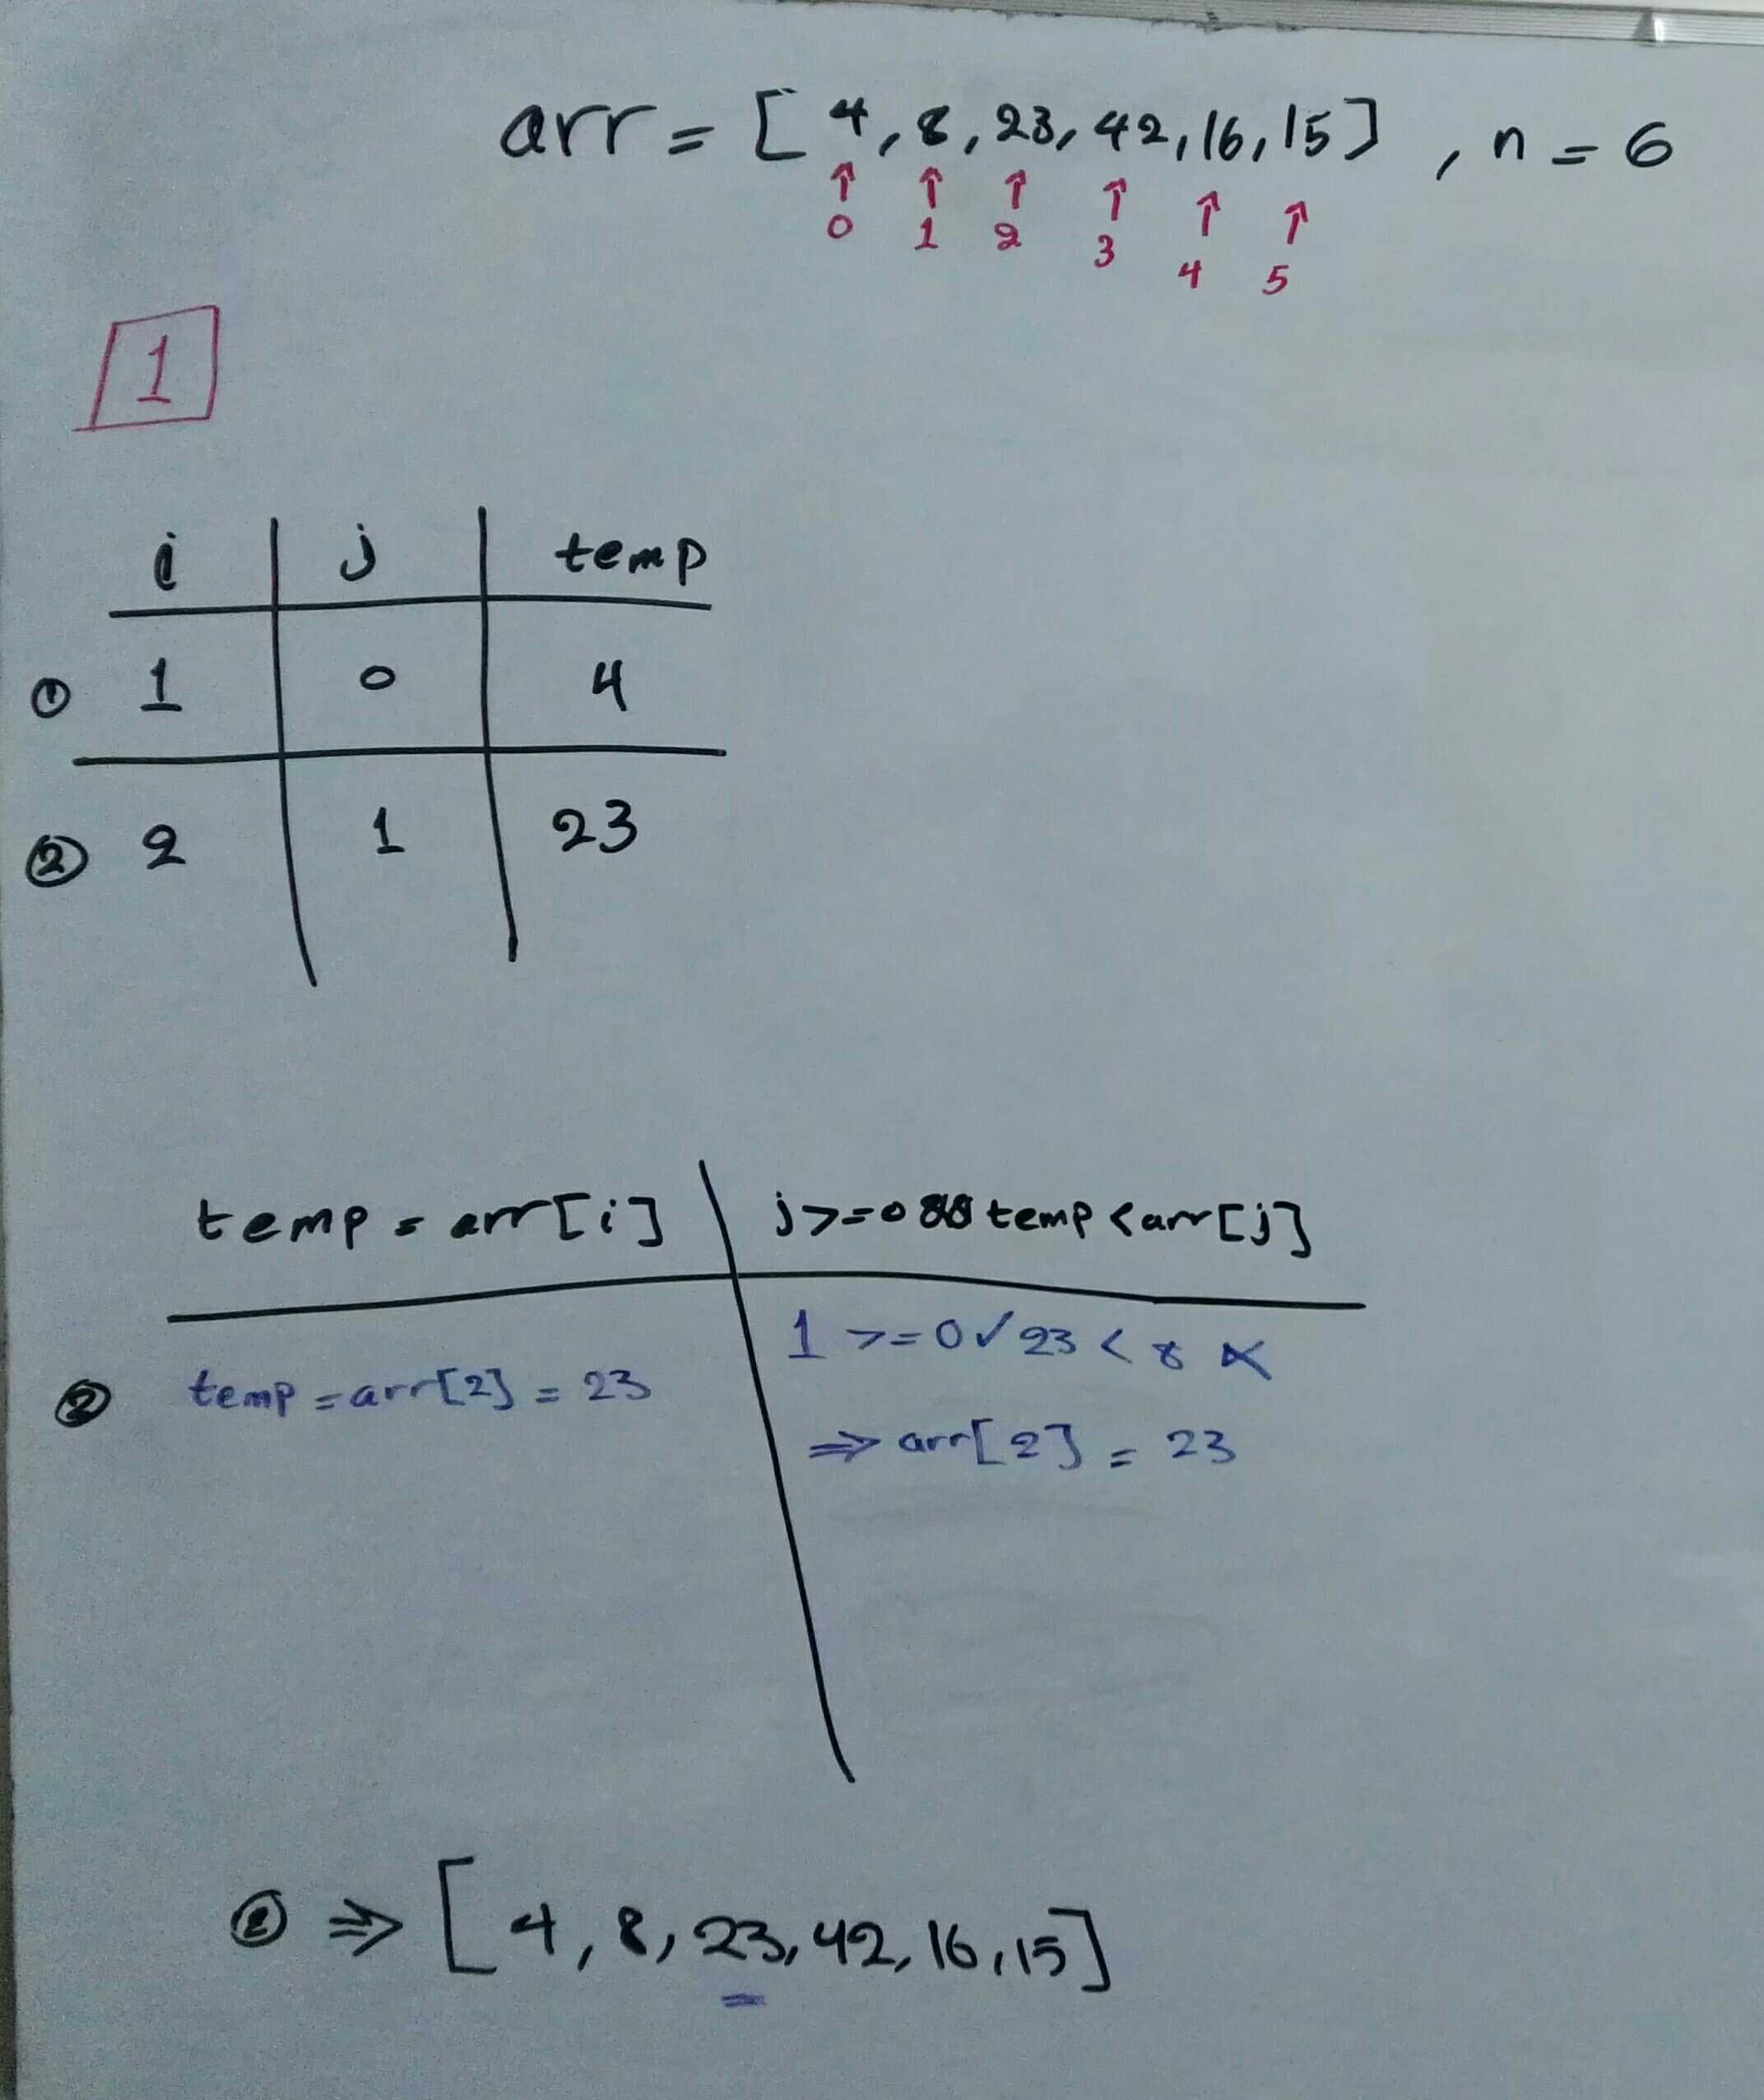 arr = [ 4, 8, 23, 42, 16, 15] , n = 6
↑ ↑ ↑ ↑ ↑ ↑
0 1 2 3 4 5
1
i j temp
① 1 0 4
② 2 1 23
temp = arr[i] j>=0 && temp < arr[j]
1 >=0 ✓ 23 < 8 ×
② temp = arr[2] = 23
⇒ arr[2] = 23
② ⇒ [ 4, 8, 23, 42, 16, 15]